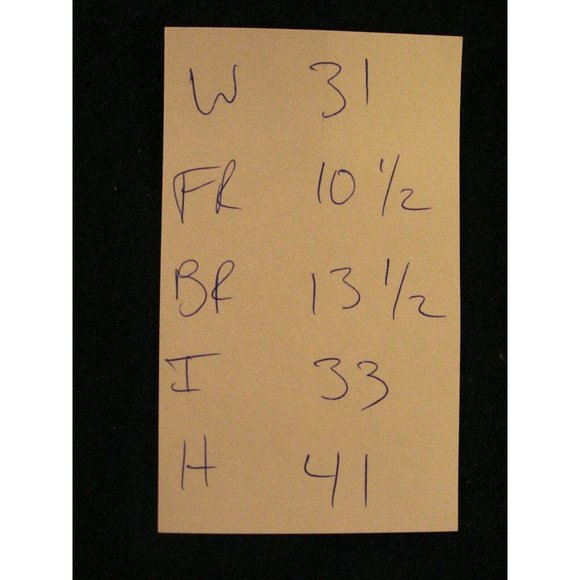 W 31
FR 10 1/2
BR 13 1/2
I 33
H 41